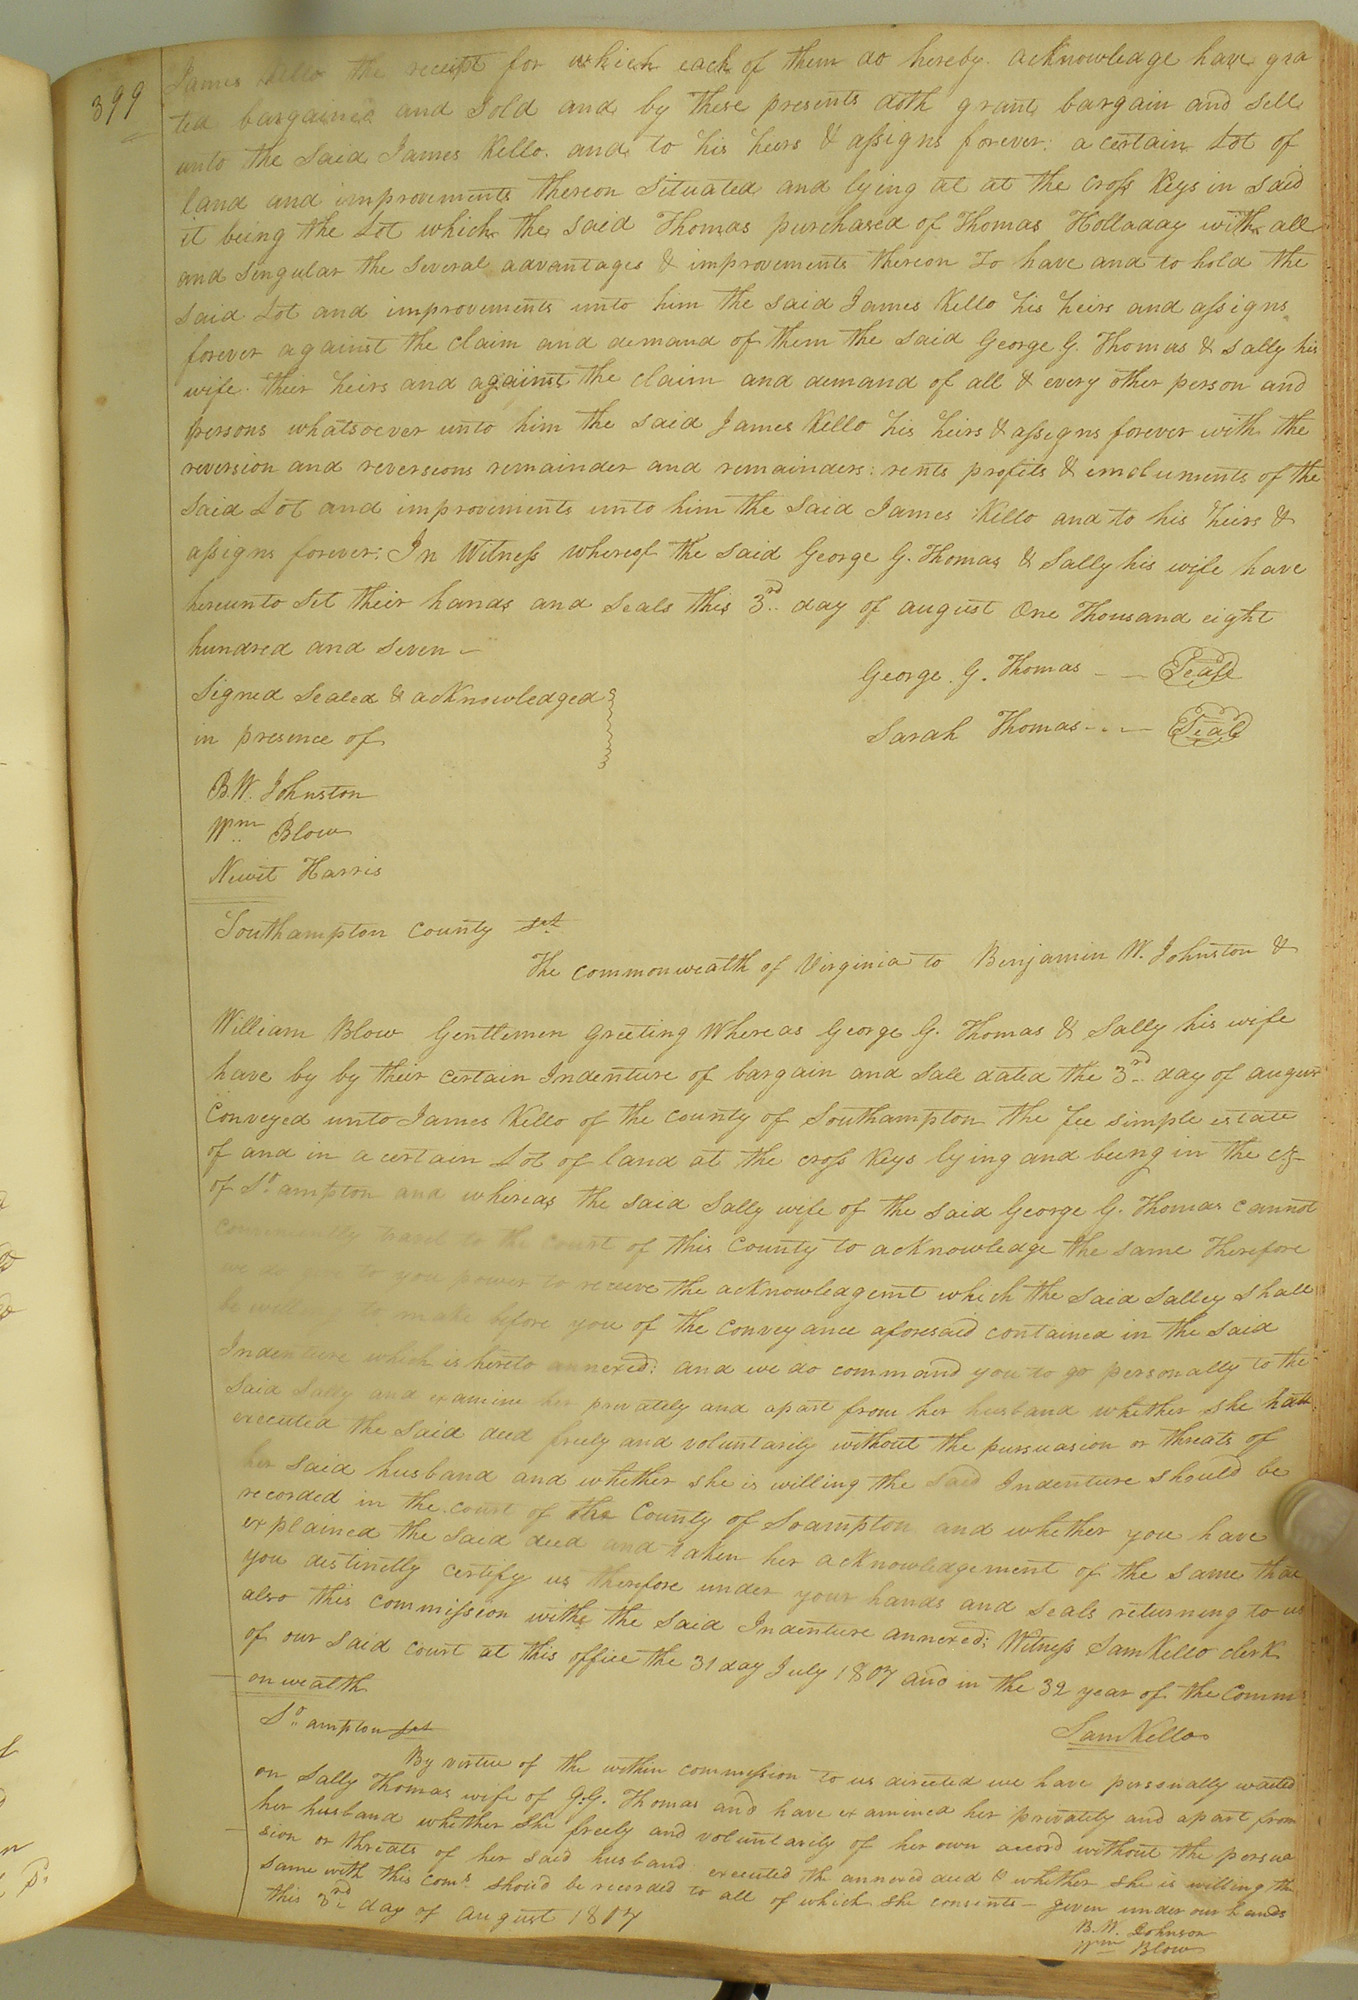 399
James Kello the receipt for which each of them do hereby acknowledge have gra
ted bargained and Sold and by these presents doth grant bargain and Sell
unto the Said James Kello. and to his heirs & assigns forever: a certain Lot of
land and improvements thereon Situated and lying at at the Cross Keys in Said
it being the Lot which the said Thomas purchased of Thomas Holladay with all
and Singular the Several advantages & improvements thereon To have and to hold the
said Lot and improvements unto him the said James Kello his heirs and assigns
forever against the claim and demand of them the said George G. Thomas & Sally his
wife. their heirs and against the claim and demand of all & every other person and
persons whatsoever unto him the said James Kello his heirs & assigns forever with the
reversion and reversions remainder and remainders: rents profits & emoluments of the
Said Lot and improvements unto him the Said James Kello and to his heirs &
assigns forever: In Witness whereof the said George G. Thomas & Sally his wife have
hereunto Set their hands and Seals this 3rd day of august One Thousand eight
hundred and Seven –
George. G. Thomas - - Seal
Signed Sealed & acknowledged
in presence of
Sarah Thomas - - - Seal
B. W. Johnston
Wm Blow
Newit Harris
Southampton County Sct
The commonwealth of Virginia to Benjamin W. Johnston &
William Blow Gentlemen Greeting Whereas George G. Thomas & Sally his wife
have by by their certain Indenture of bargain and Sale dated the 3rd day of augus
Conveyed unto James Kello of the county of Southampton the fee simple estate
of and in a certain Lot of land at the cross Keys lying and being in the cty
of So ampton and whereas the said Sally wife of the said George G. Thomas cannot
conveniently travel to the court of this County to acknowledge the same Therefore
we do give to you power to receive the acknowledgemt which the said Salley Shall
be willing to make before you of the Conveyance aforesaid contained in the said
Indenture which is hereto annexed: and we do command you to go personally to the
Said Sally and examine her privately and apart from her husband whether She hath
executed the Said deed freely and voluntarily without the pursuasion or threats of
her said husband and whether she is willing the said Indenture should be
recorded in the court of the County of Soampton and whether you have
explained the said deed and taken her acknowledgement of the same that
you distinctly certify us therefore under your hands and Seals returning to us
also this commission with the Said Indenture annexed: Witness Sam Kello clerk
of our said court at this office the 31 day July 1807 and in the 32 year of the Comm
onwealth
Sam Kello
So ampton Sct
By virtue of the within commission to us directed we have personally waited
on Sally Thomas wife of G.G. Thomas and have examined her privately and apart from
her husband whether She freely and voluntarily of her own accord without the persua
sion or threats of her said husband executed the annexed deed & whether she is willing the
same with this coms. should be recorded to all of which she consents – given under our hands
this 3rd day of august 1807
B. W. Johnson
Wm Blow